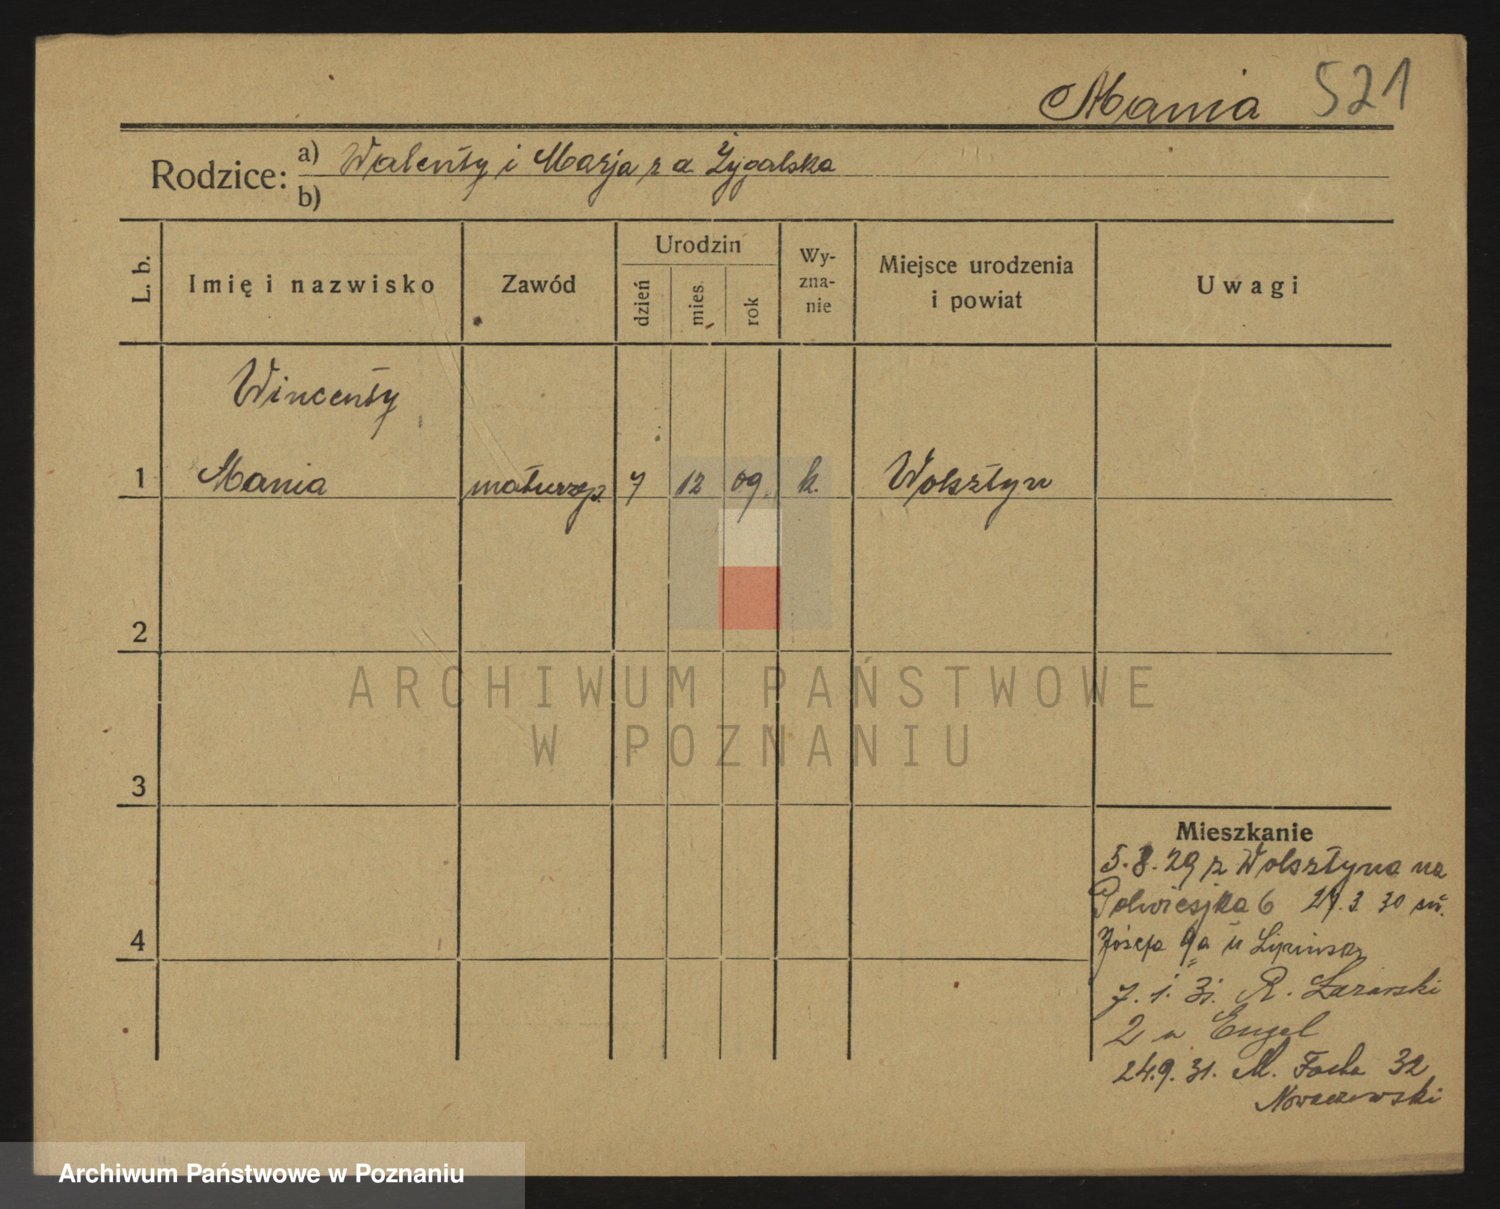 Mania 521
Rodzice: a) Walenty i Marja z d. Zygalska
b)
L. b.
Imię i nazwisko
Zawód
Urodzin
dzień
mies.
rok
Wy-
zna-
nie
Miejsce urodzenia
i powiat
Uwagi
Wincenty
1 Mania maturzp. 7 12 09. k. Wolsztyn
2
3
4
Mieszkanie
5.8.29 z Wolsztyna na
Polwiejska 6 27.3 30 św.
Józefa 9a u Lipinska
7.1.31. R. Łazarski
2 u Engel
24.9.31. M. Focha 32
Nowaczewski
ARCHIWUM PAŃSTWOWE
W POZNANIU
Archiwum Państwowe w Poznaniu